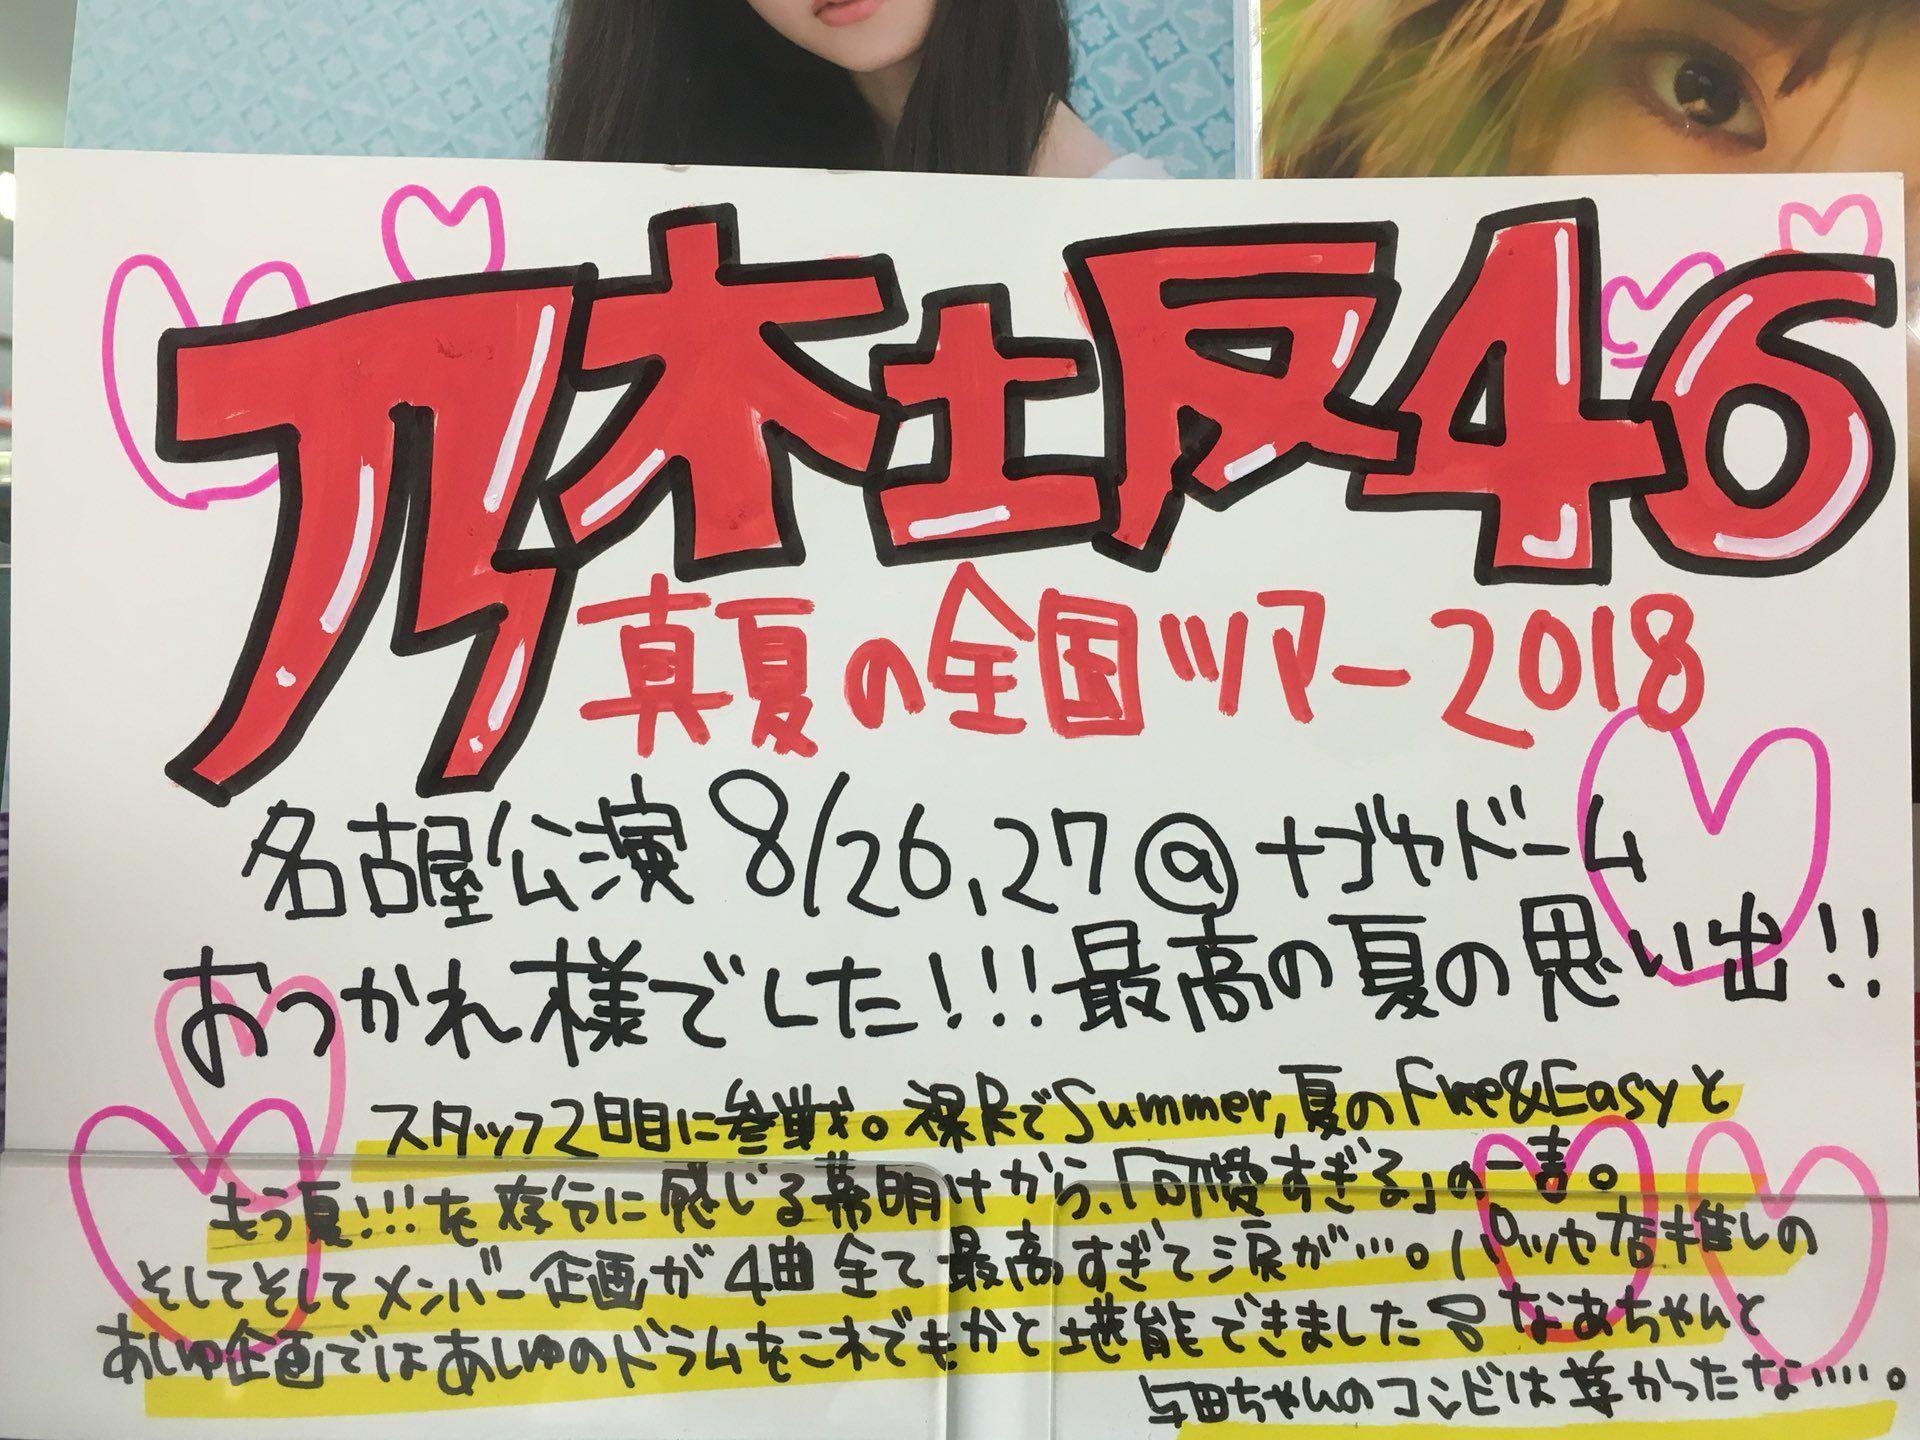 乃木坂46
真夏の全国ツアー2018
名古屋公演 8/26,27@ナゴヤドーム
おつかれ様でした!!!最高の夏の思い出!!
スタッフ2日目に参戦。裸足でSummer,夏のFree&Easyと
もう夏!!!を存分に感じる幕明けから、「可愛すぎる」の一言。
そしてそしてメンバー企画が4曲全て最高すぎて涙が…。パッセ店推しの
あしゅ企画ではあしゅのドラムをこれでもかと堪能できました!!なあちゃんと
与田ちゃんのコンビは尊かったな……。